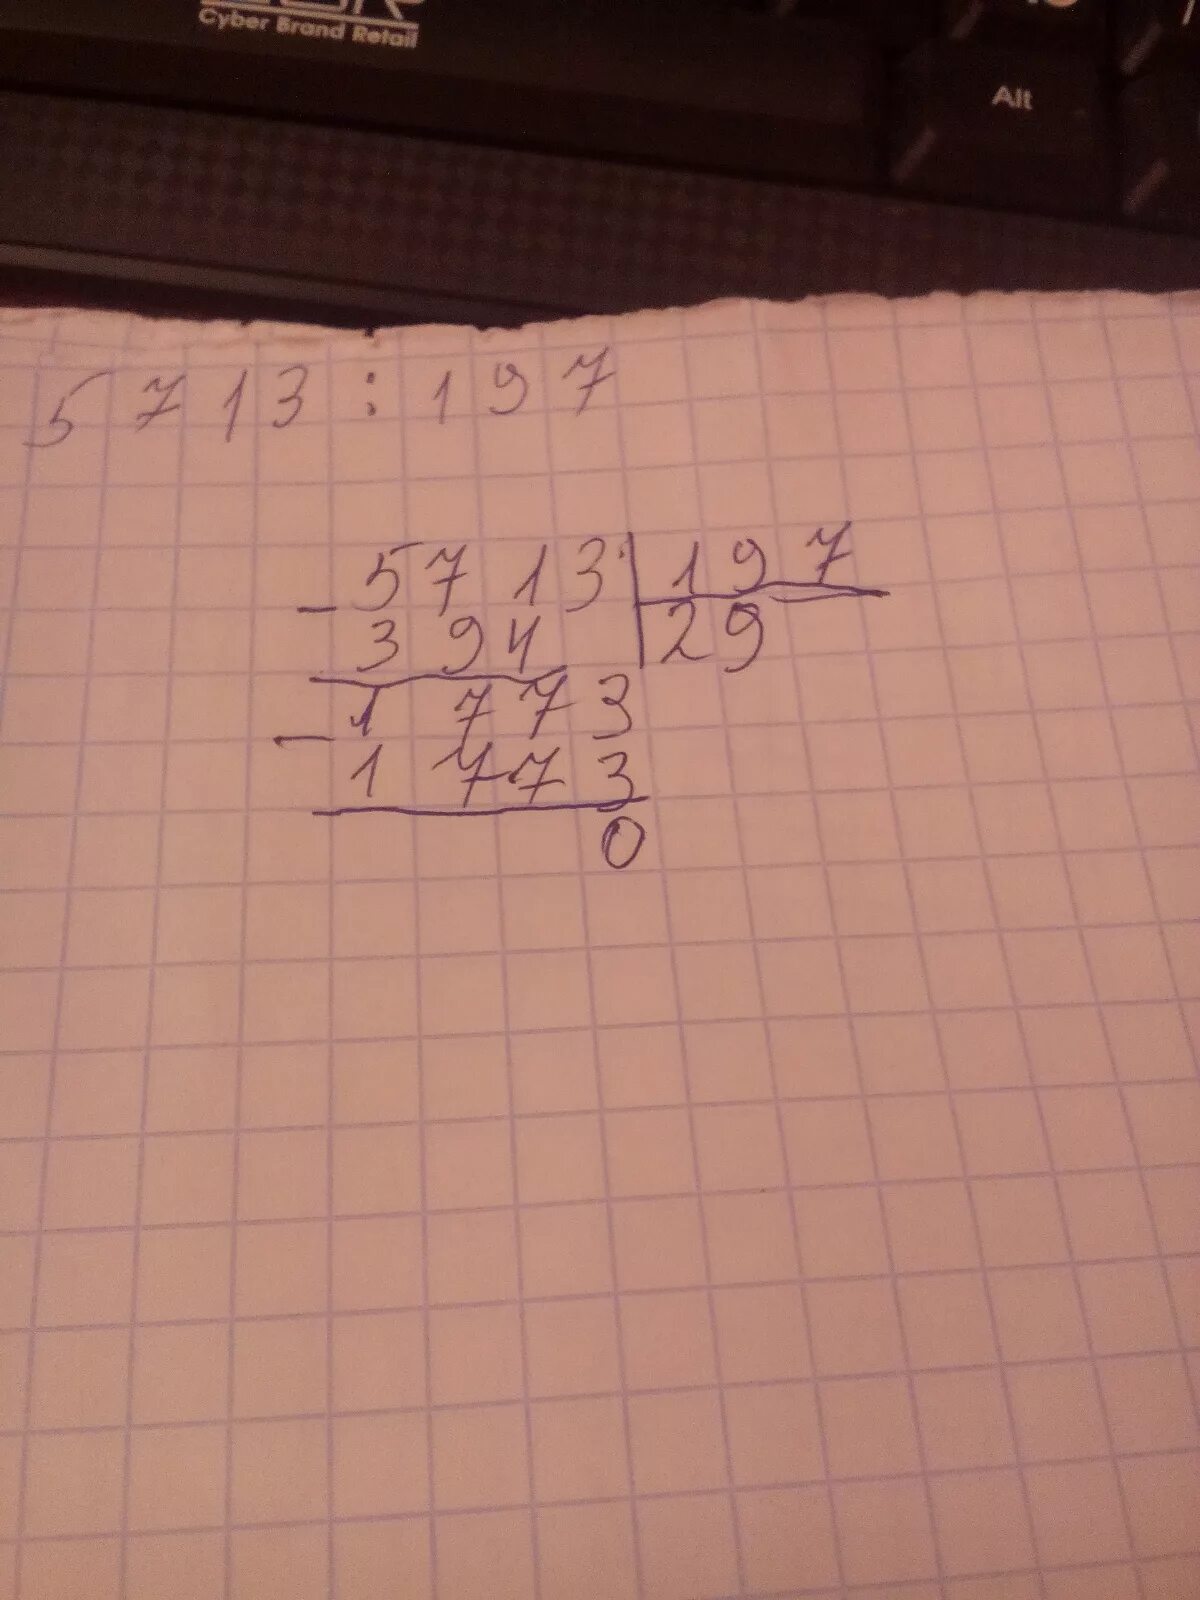 Cyber Brand Retail
Alt
5713 : 197
− 5713 | 197
394 | 29
− 1773
1773
0